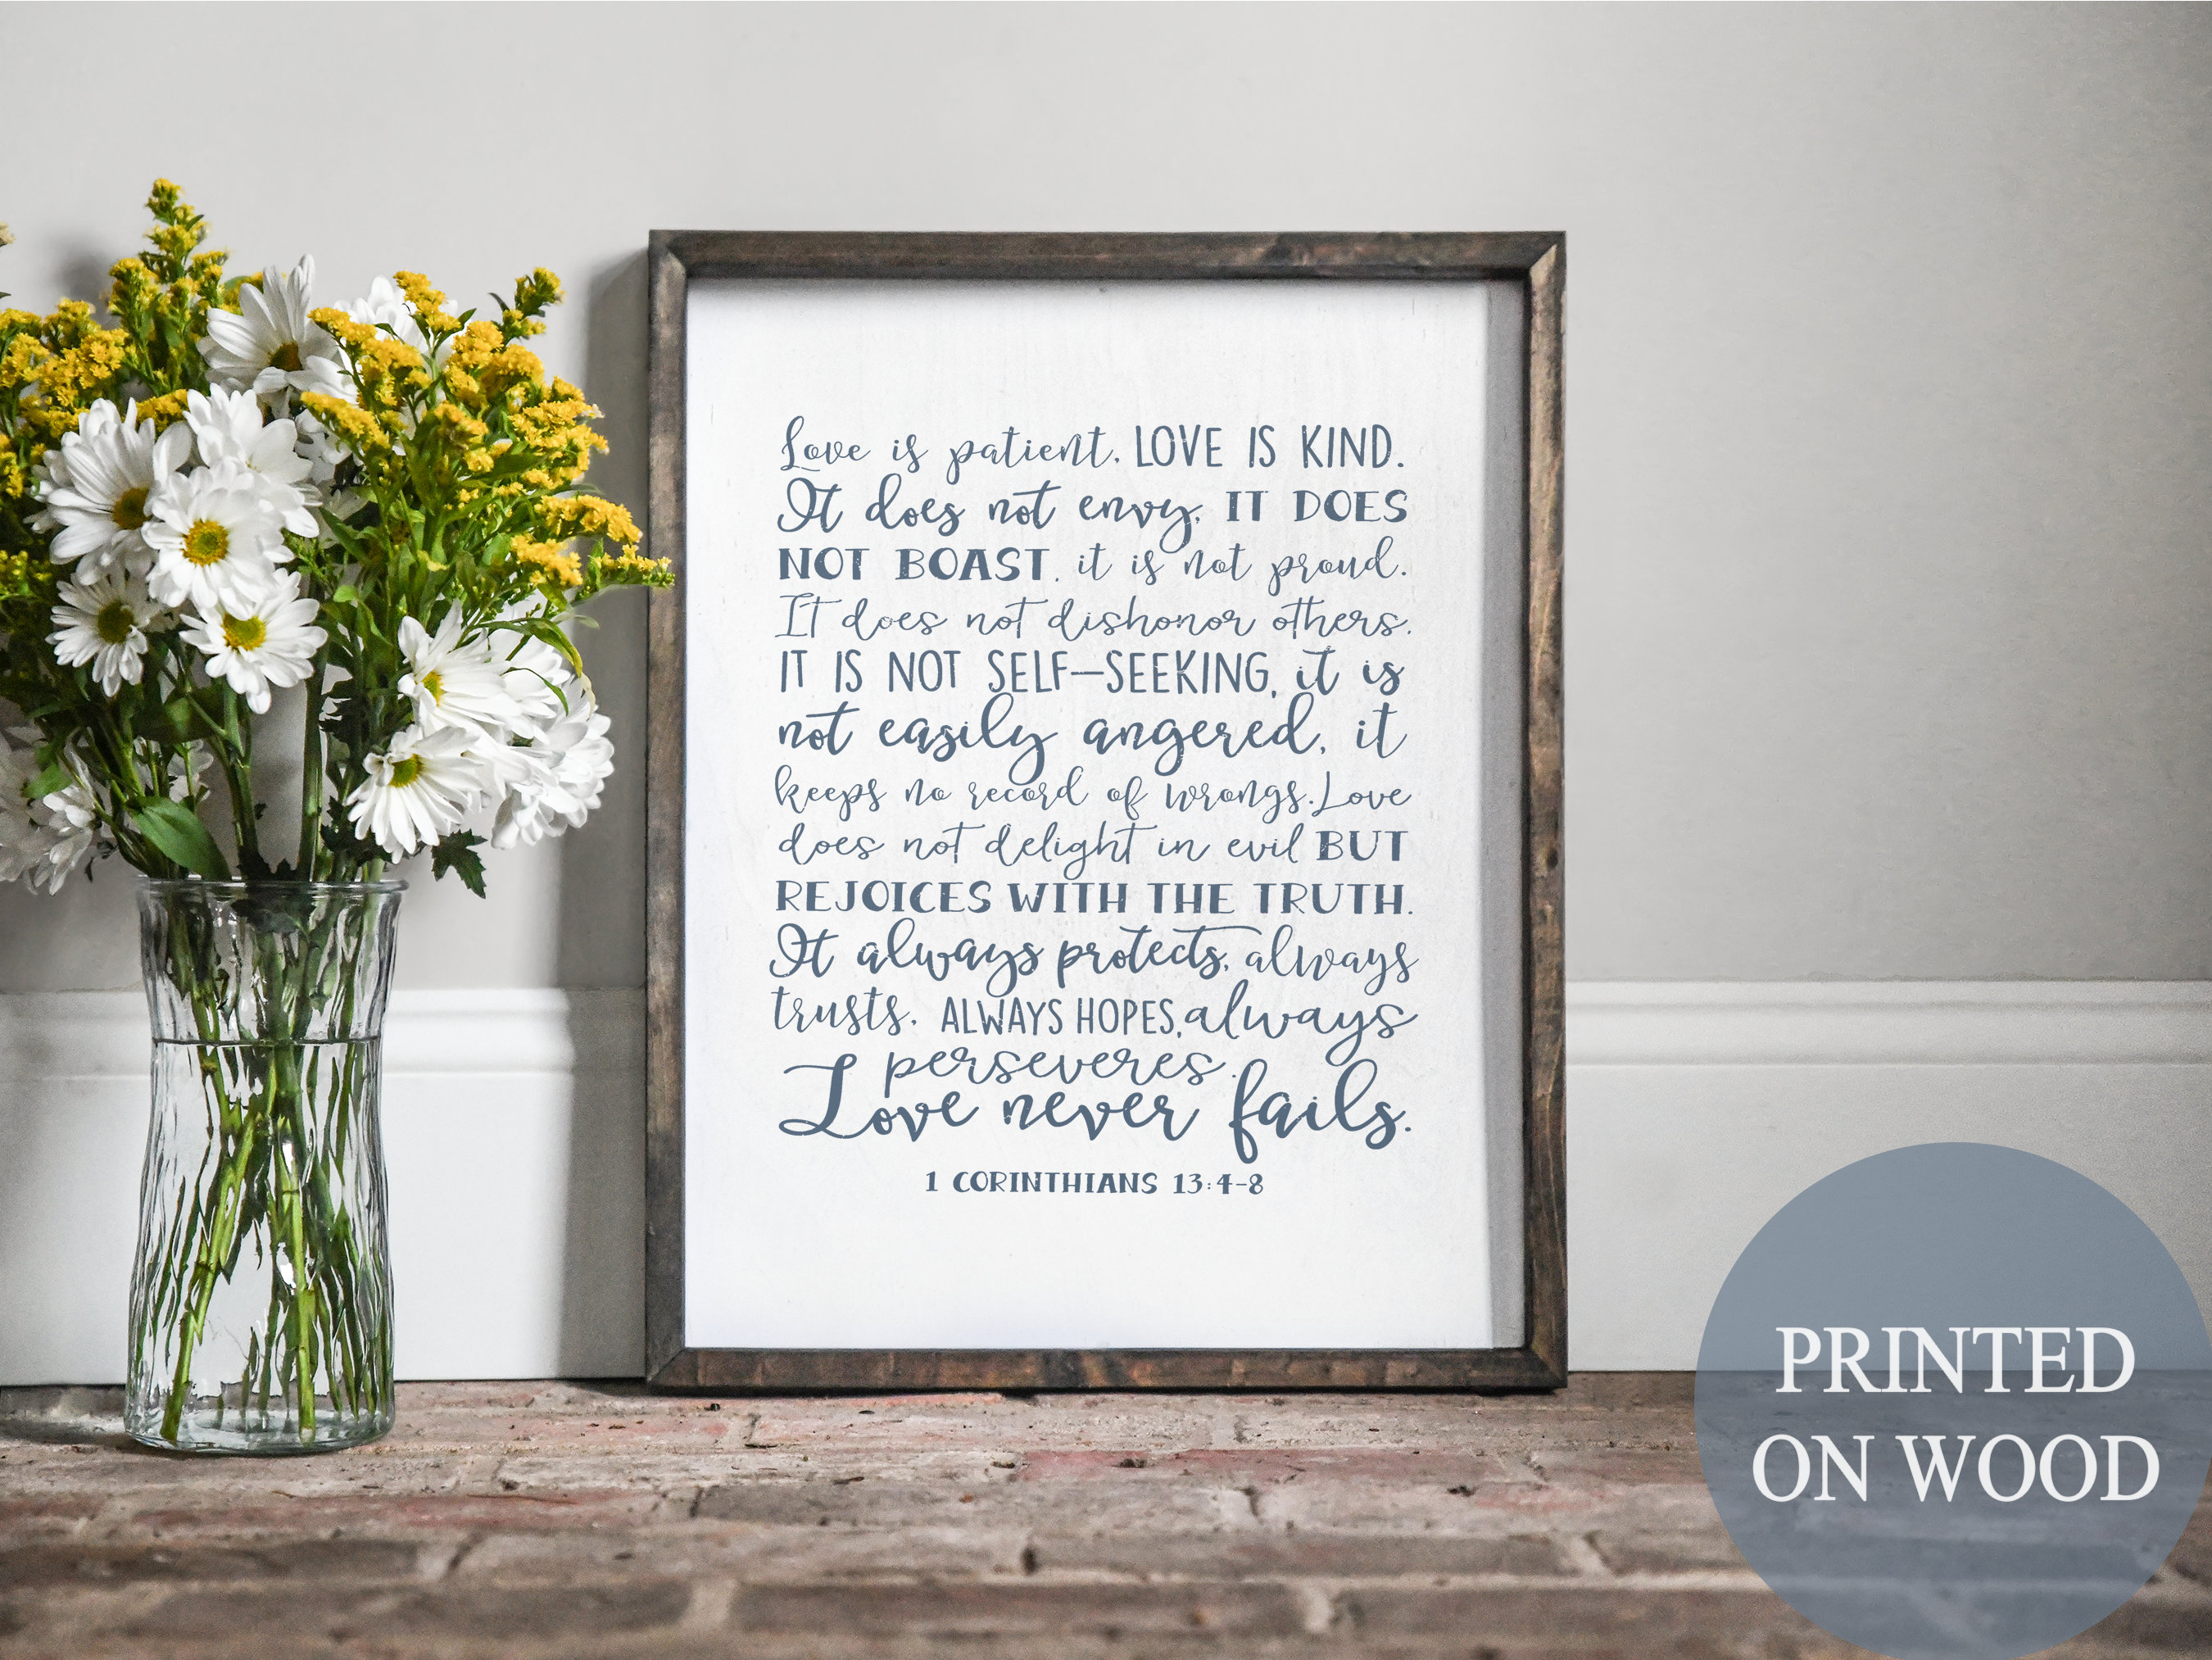 Love is patient, LOVE IS KIND.
It does not envy, IT DOES
NOT BOAST, it is not proud.
It does not dishonor others,
IT IS NOT SELF-SEEKING, it is
not easily angered, it
keeps no record of wrongs. Love
does not delight in evil BUT
REJOICES WITH THE TRUTH.
It always protects, always
trusts, ALWAYS HOPES, always
perseveres.
Love never fails.
1 CORINTHIANS 13:4-8
PRINTED
ON WOOD